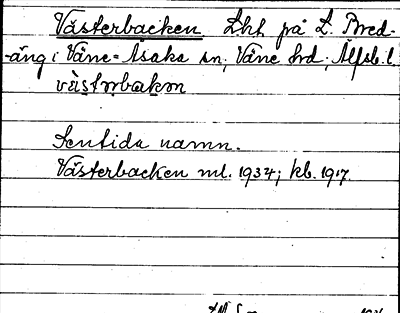 Västerbacken Lht på L. Bred-
-äng i Väne-Åsaka sn, Väne hd, Älfsb. l.
västərbakən
Sentida namn.
Västerbacken ml. 1934; kb. 1917